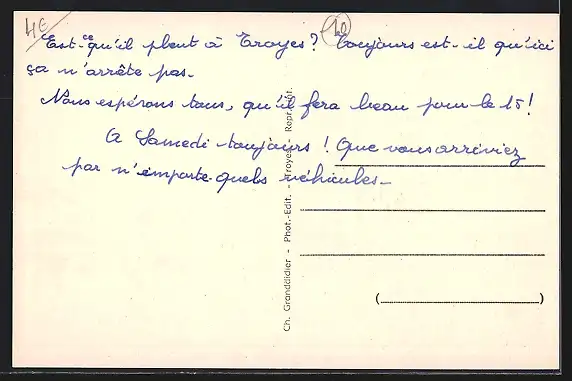 4€
10
Est-ce qu'il pleut à Troyes? Toujours est-il qu'ici
ça n'arrête pas.
Nous espérons tous, qu'il fera beau pour le 15!
A Samedi toujours! Que vous arriviez
par n'importe quels véhicules-
Ch. Granddidier - Phot.-Edit. - Troyes - Repr. Int.
( )